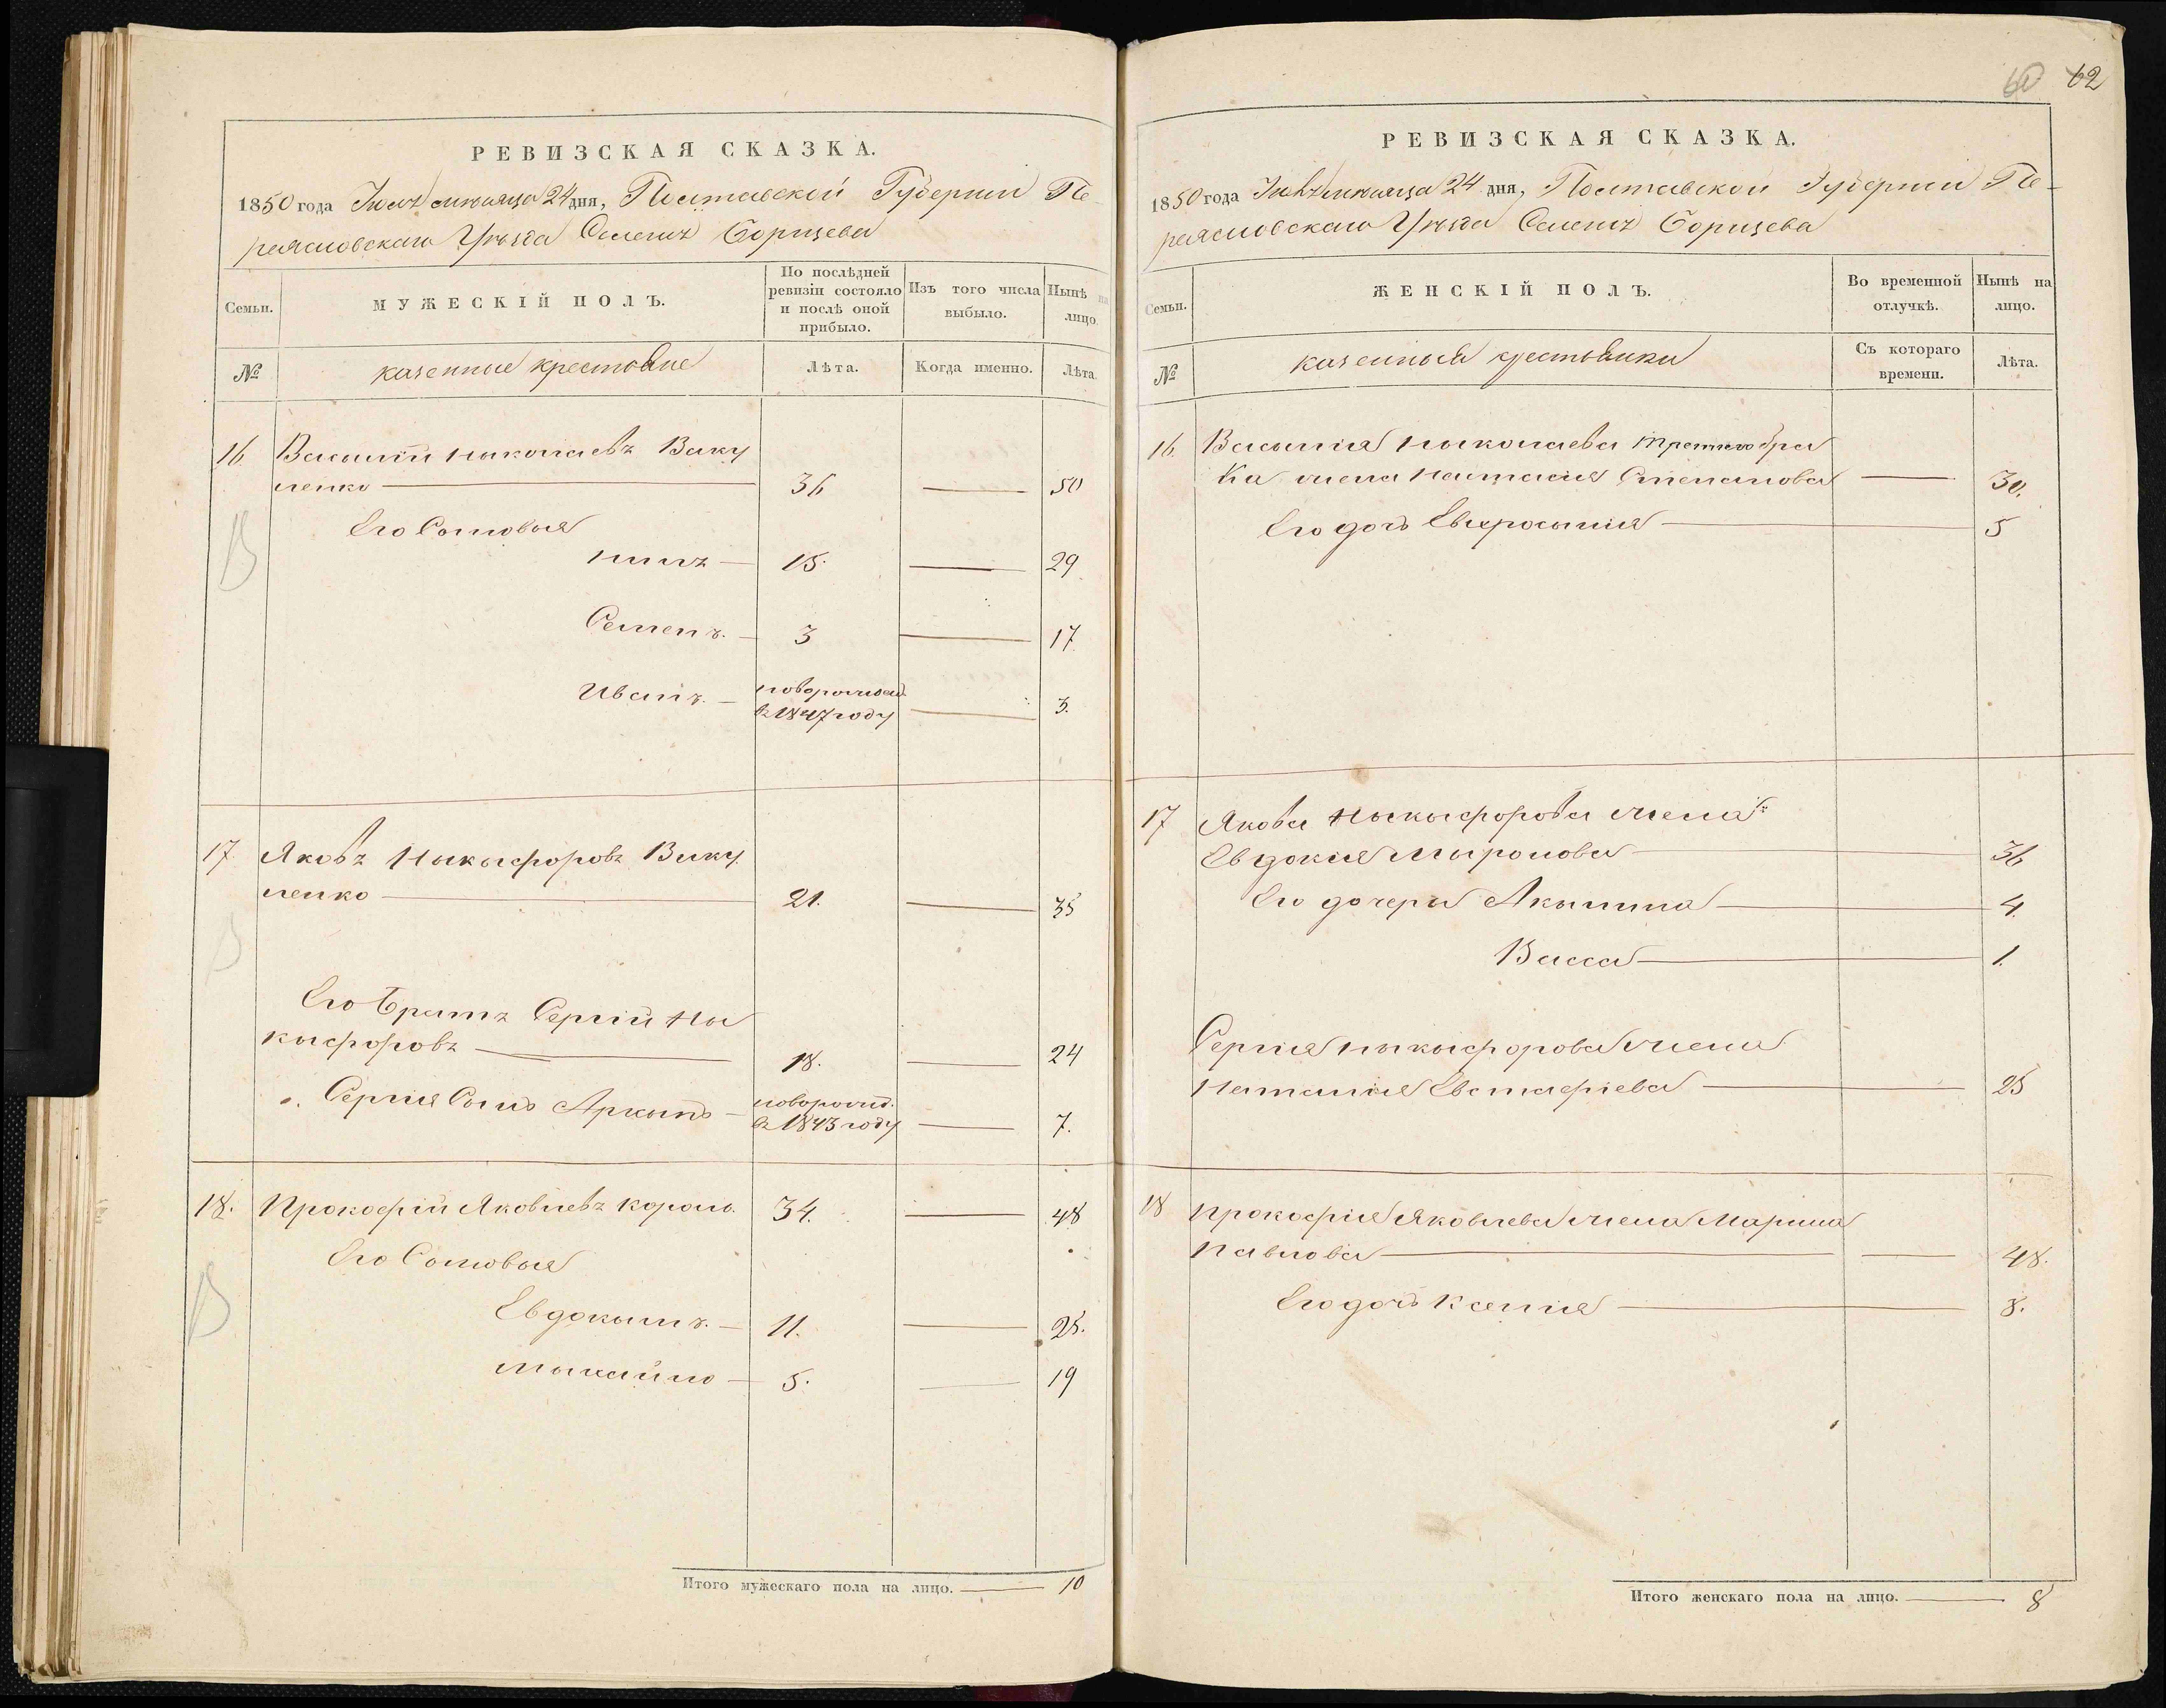 62
РЕВИЗСКАЯ СКАЗКА.
1850 года Июля месяца 24 дня, Полтавской Губернии Пе-
реясловскаго Уѣзда Селенія Борщева
Семьи.
МУЖЕСКІЙ ПОЛЪ.
По послѣдней
ревизіи состояло
и послѣ оной
прибыло.
Изъ того числа
выбыло.
Нынѣ на
лицо.
№
казенные крестьяне
Лѣта.
Когда именно.
Лѣта.
16 Василій Николаевъ Баку
ленко 36 50
Его Сыновья
15. 29
Семенъ. 3 17
Иванъ. новорожд.
въ 1847 году 3.
17. Яковъ Ныкыфоровъ Баку
ленко 21. 35
Его братъ Сергій Ны
кыфоровъ 18. 24
Сергія Сынъ Архыпъ новорожд.
въ 1843 году 7.
18. Прокофій Яковлевъ Король. 34. 48
Его Сыновья
Евдокымъ. 11. 25.
Мыхайло 5. 19
Итого мужескаго пола на лицо. 10
РЕВИЗСКАЯ СКАЗКА.
1850 года Июля месяца 24 дня, Полтавской Губернии Пе-
реясловскаго Уѣзда Селенія Борщева
Семьи.
ЖЕНСКІЙ ПОЛЪ.
Во временной
отлучкѣ.
Нынѣ на
лицо.
№
казенныя крестьянки
Съ котораго
времени.
Лѣта.
16. Василія Ныколаева третьего бра
ка жена Настасия Степанова 30.
Его дочь Евфросынія 5
17 Якова Ныкыфорова жена
Евдокия Мыронова 36
Его дочери Акылина 4.
Васса 1.
Сергия Ныкыфорова жена
Наталия Евстафіева 25
18 Прокофія Яковлева жена Марина
Павлова 48.
Его дочь Ксенія 8.
Итого женскаго пола на лицо. 8